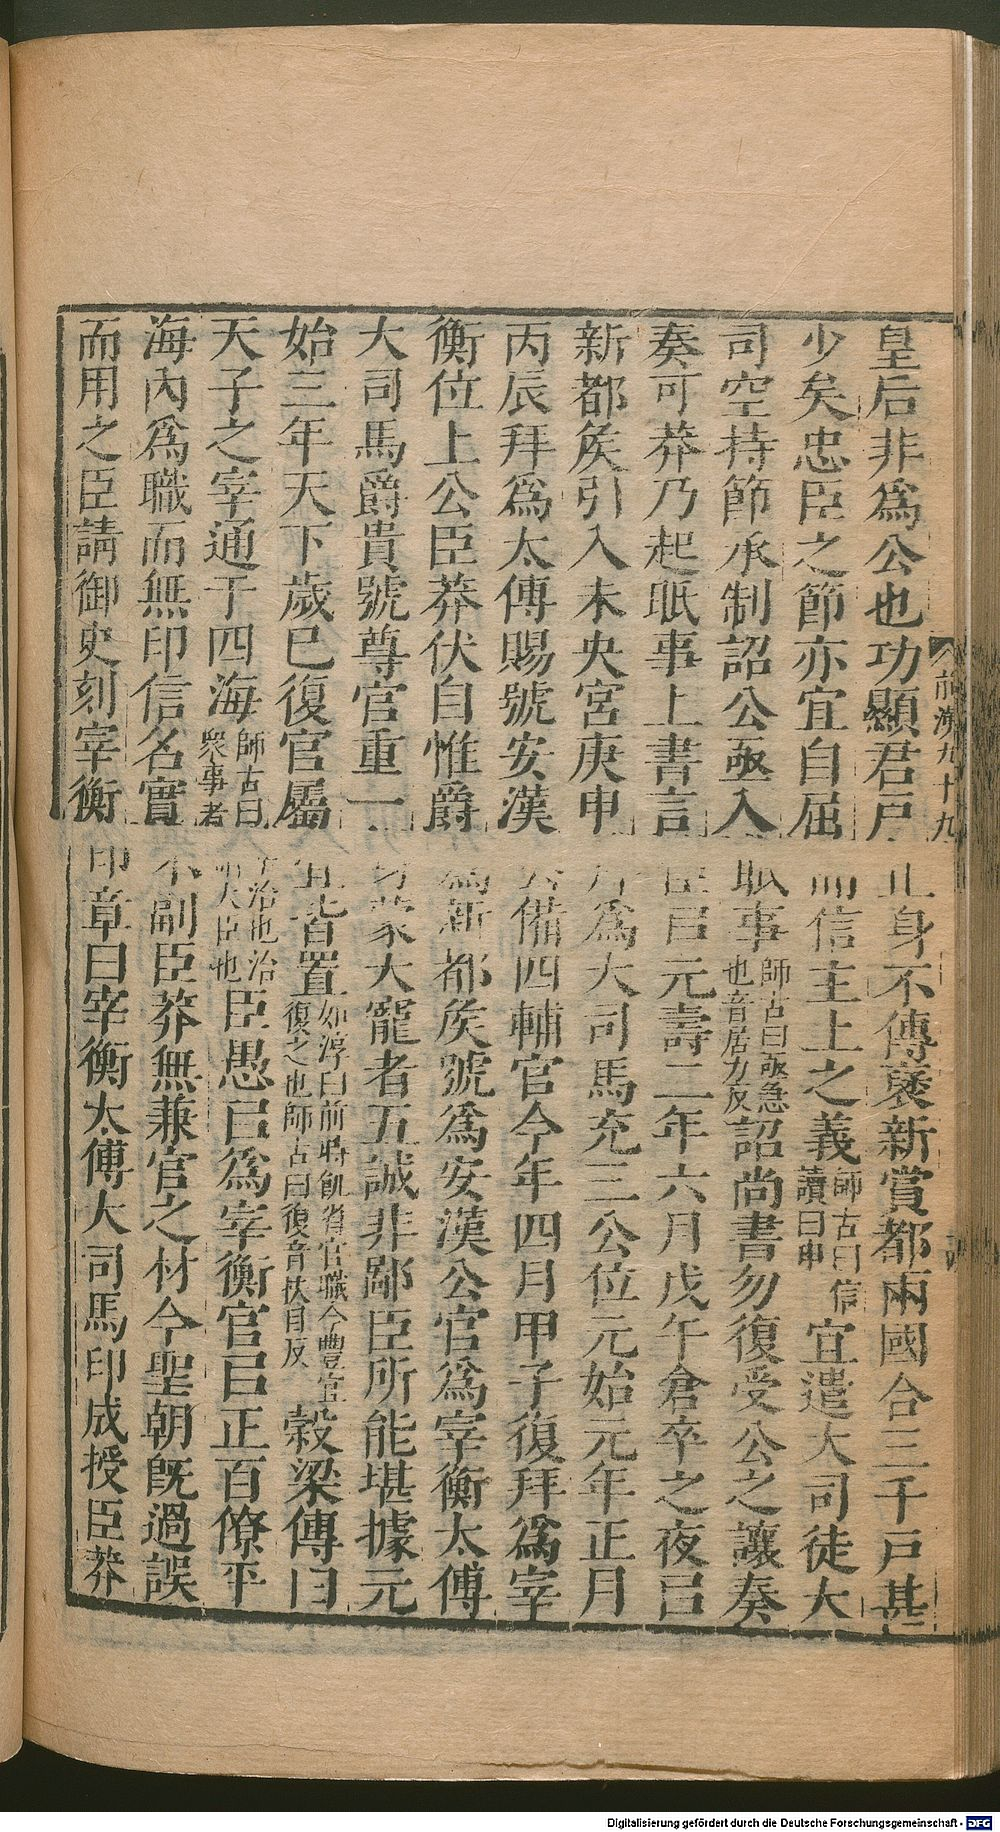 皇后非爲公也功顯君戶止身不傳褒新賞都兩國合三千戶甚
少矣忠臣之節亦宜自屈而信主上之義師古曰信讀曰申宜遣大司徒大
司空持節承制詔公亟入眂事師古曰亟急也音居力反詔尚書勿復受公之讓奏
奏可莽乃起眂事上書言臣㠯元壽二年六月戊午倉卒之夜㠯
新都矦引入未央宮庚申拜爲大司馬充三公位元始元年正月
丙辰拜爲太傅賜號安漢公備四輔官今年四月甲子復拜爲宰
衡位上公臣莽伏自惟爵爲新都矦號爲安漢公官爲宰衡太傅
大司馬爵貴號尊官重一身蒙大寵者五誠非鄙臣所能堪據元
始三年天下歲已復官屬宜皆置如淳曰前時飢省官職今豐宜復之也師古曰復音扶目反穀梁傳曰
天子之宰通于四海師古曰宰治也治衆事者謂大臣也臣愚㠯爲宰衡官㠯正百僚平
海內爲職而無印信名實不副臣莽無兼官之材今聖朝旣過誤
而用之臣請御史刻宰衡印章曰宰衡太傅大司馬印成授臣莽
前漢九十九
Digitalisierung gefördert durch die Deutsche Forschungsgemeinschaft - DFG